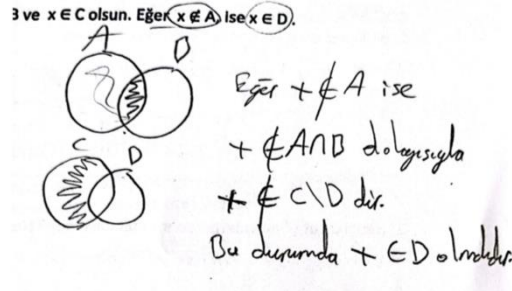 3 ve x ∈ C olsun. Eğer x ∉ A ise x ∈ D.
A
D
Eğer x ∉ A ise
x ∉ A∩B dolayısıyla
C
D
x ∉ C\D dir.
Bu durumda x ∈ D olmalıdır.